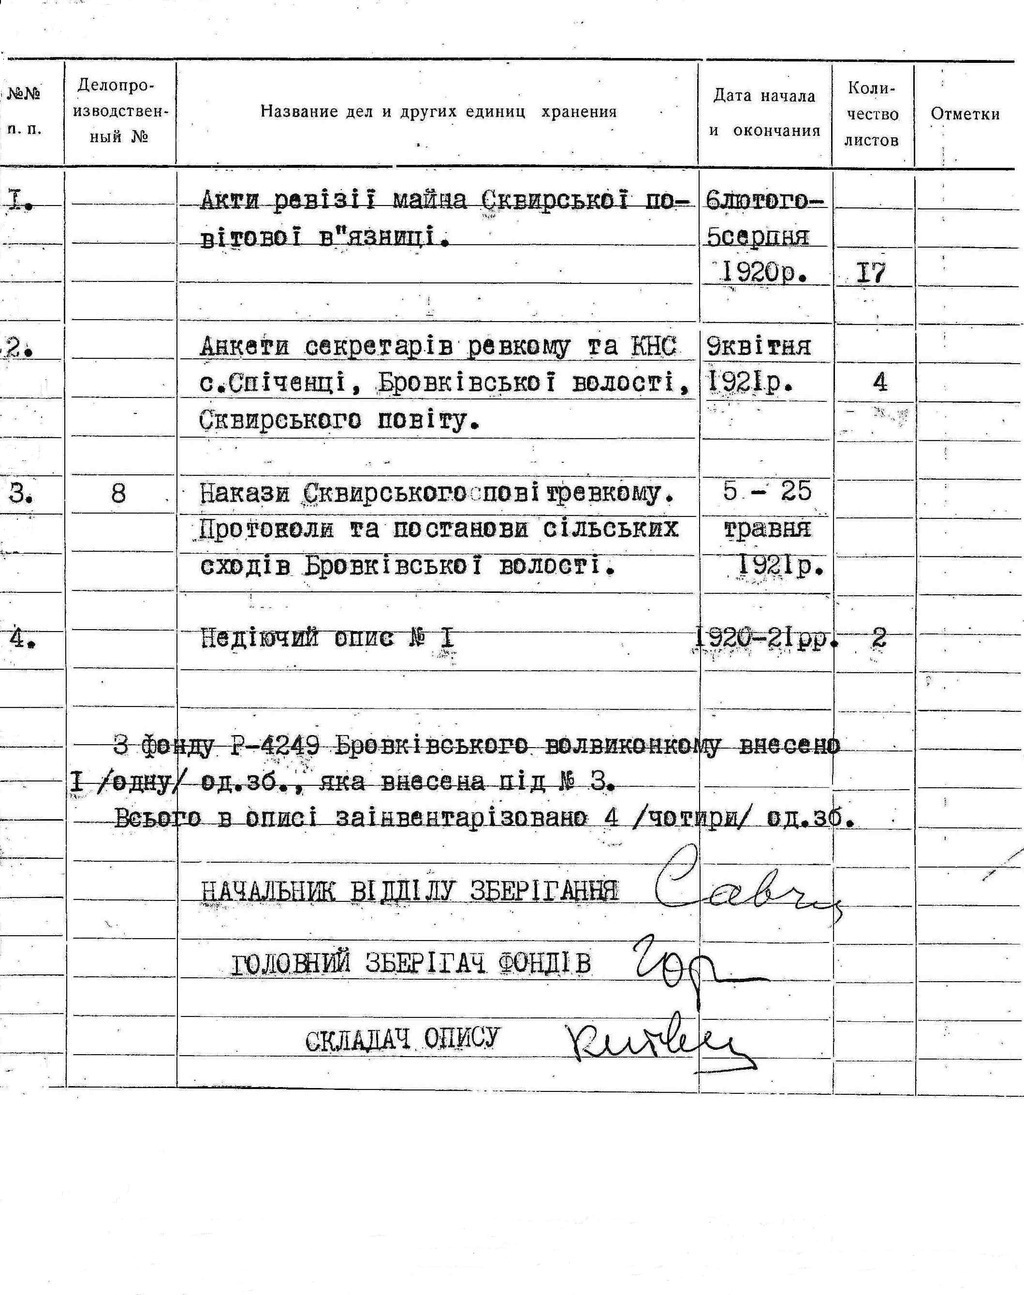 №№ п. п.
Делопро-изводствен-ный №
Название дел и других единиц хранения
Дата начала и окончания
Коли-чество листов
Отметки
I. Акти ревізії майна Сквирської по- 6лютого-
вітової в"язниці. 5серпня
1920р. I7
2. Анкети секретарів ревкому та КНС 9квітня
с.Спіченці, Бровківської волості, I92Iр. 4
Сквирського повіту.
3. 8 Накази Сквирського повітревкому. 5 - 25
Протоколи та постанови сільських травня
сходів Бровківської волості. I92Iр.
4. Недіючий опис № I I920-2Iрр. 2
З фонду Р-4249 Бровківського волвиконкому внесено
I /одну/ од.зб., яка внесена під № 3.
Всього в описі заінвентарізовано 4 /чотири/ од.зб.
НАЧАЛЬНИК ВІДДІЛУ ЗБЕРІГАННЯ
ГОЛОВНИЙ ЗБЕРІГАЧ ФОНДІВ
СКЛАДАЧ ОПИСУ